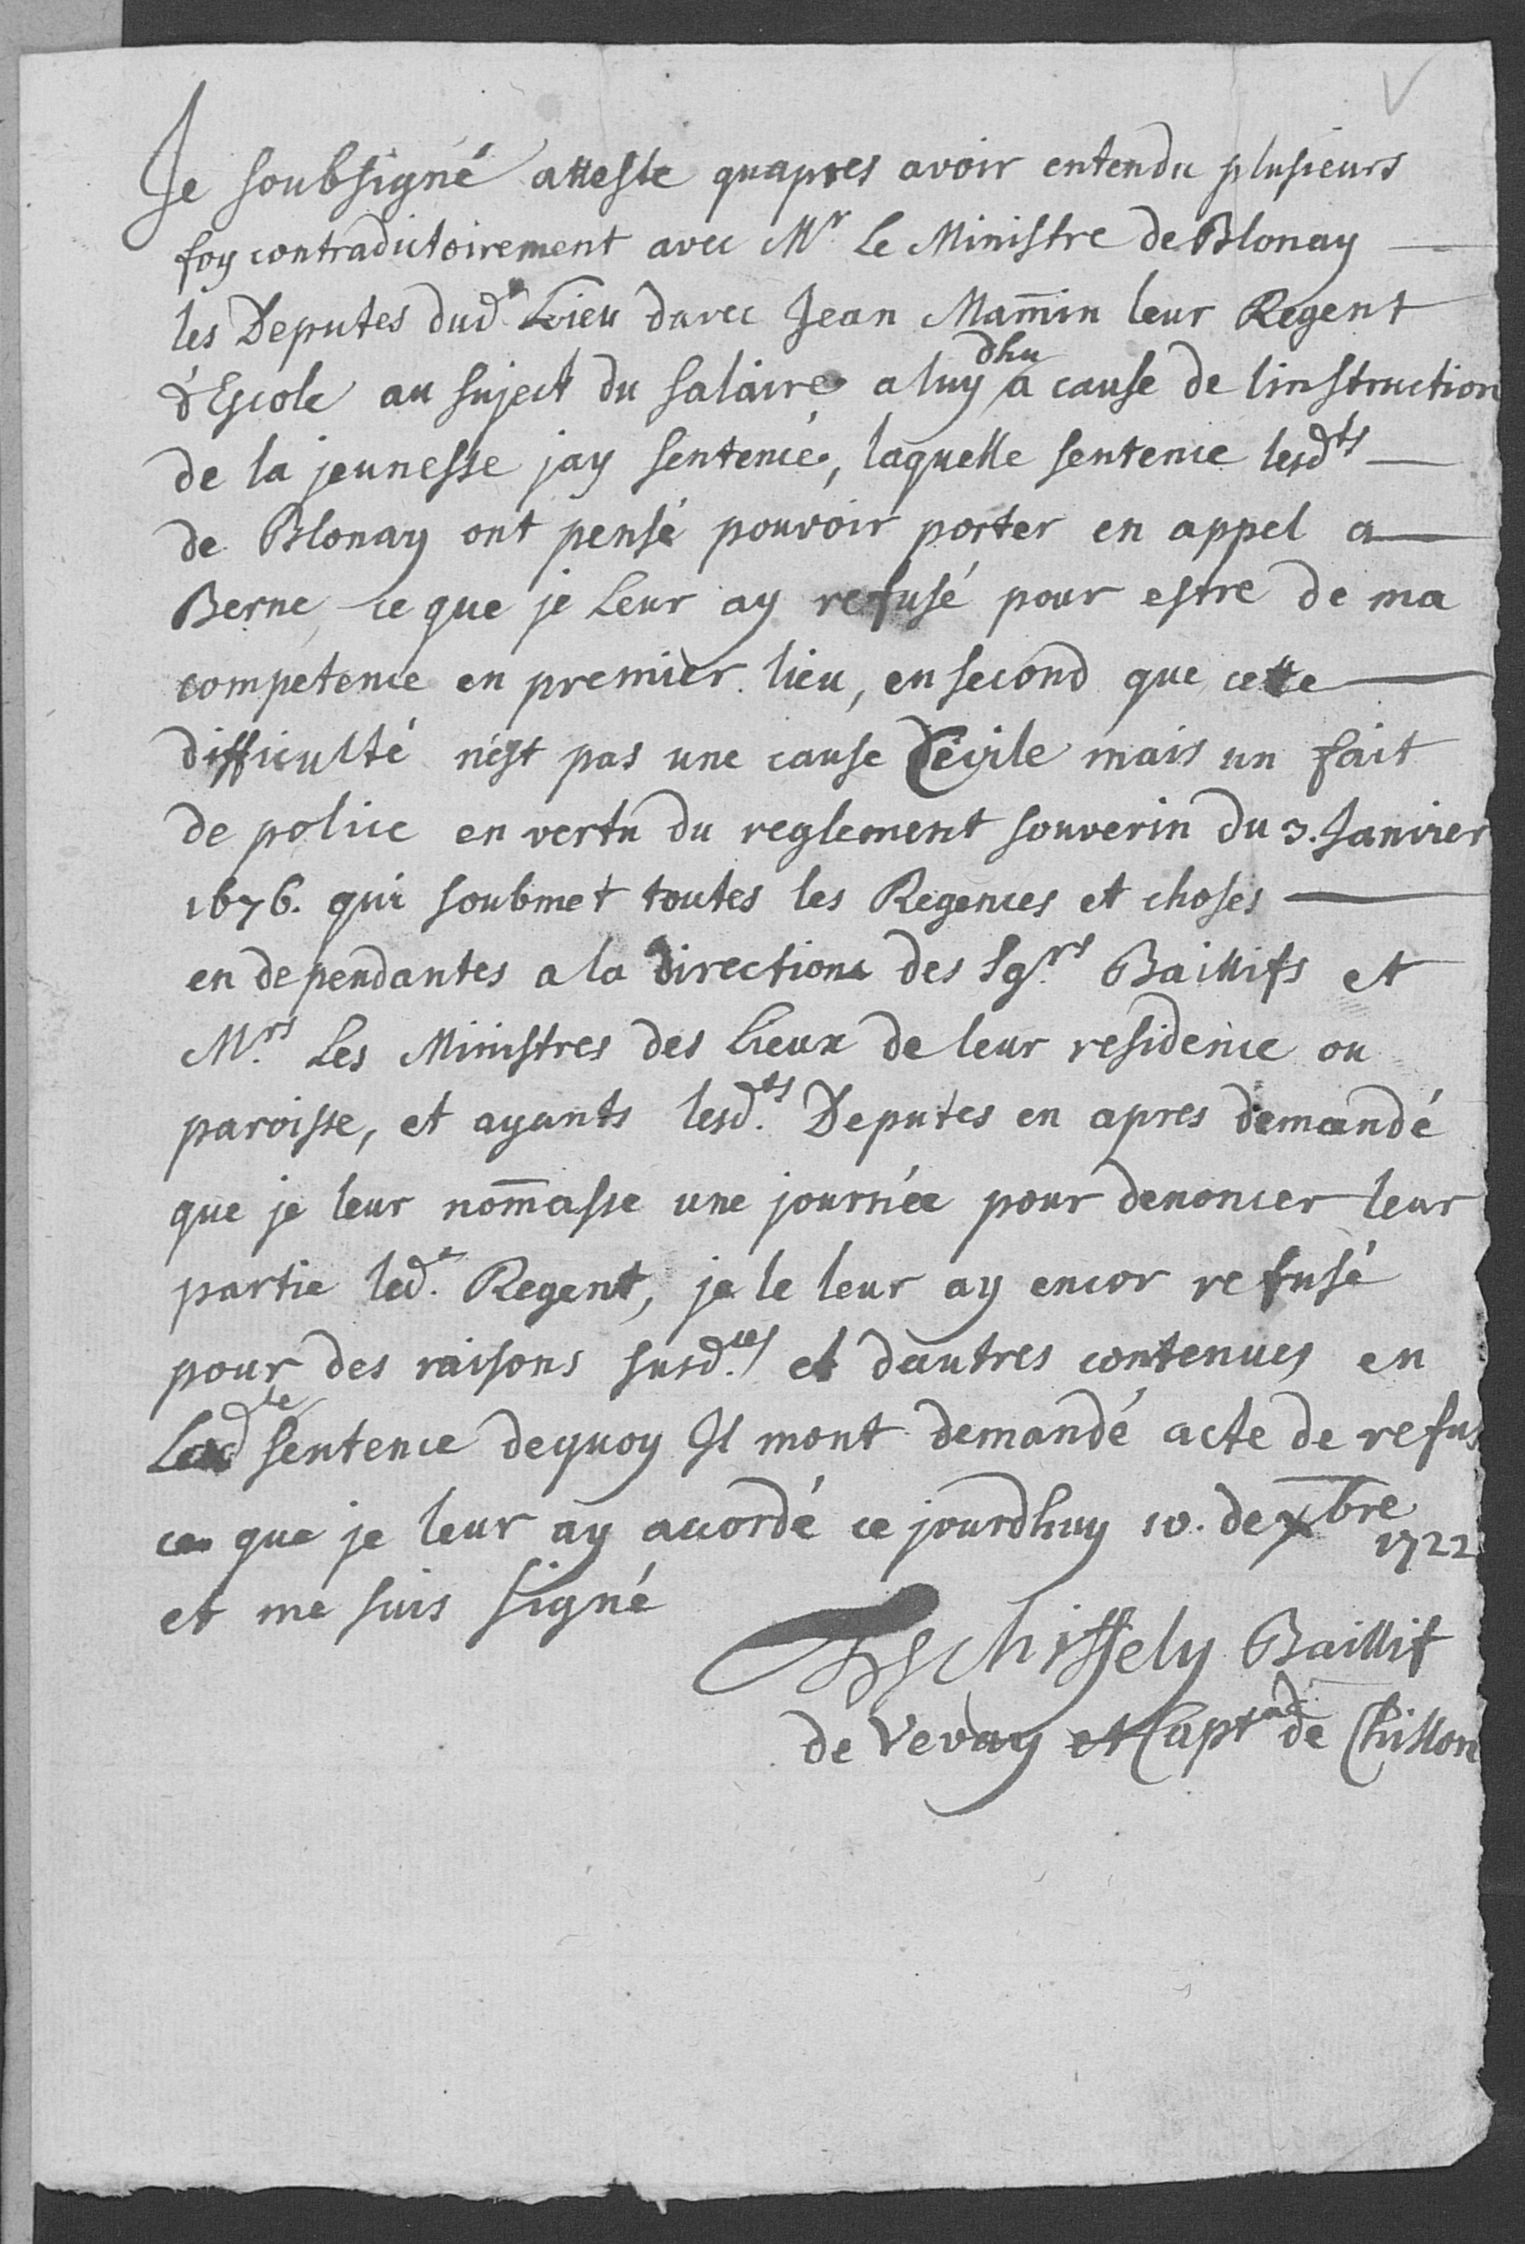 Je soubsigné atteste quapres avoir entendu plusieurs
foy contradictoirement avec Mr Le Ministre de Blonay
les Deputes dud.t Lieu davec Jean Mam̄in leur Regent
d'Escole au suject du salaire a luy dhu a cause de linstruction
de la jeunesse jay sentencé, laquelle sentence lesdts
de Blonay ont pensé pouvoir porter en appel a
Berne ce que je Leur ay refusé pour estre de ma
competence en premier lieu, en second que cette
difficulté n'est pas une cause Civile mais un fait
de police en vertu du reglement souverin du 3. Janvier
1676. qui soubmet toutes les Regences et choses
en dependantes a la direction des Sg.rs Baillifs et
M.rs Les Ministres des Lieux de leur residence ou
paroisse, et ayants lesd.ts Deputes en apres demandé
que je leur nom̄asse une journée pour denoncer leur
partie led.t Regent, je le leur ay encor refusé
pour des raisons susd.tes et dautres contenues en
Lad.te sentence dequoy Il mont demandé acte de refus
ce que je leur ay accordé ce jourdhuy 10. de xbre
1722
et me suis signé
Tschiffely Baillif
de Vevay et Capt.ne de Chillon